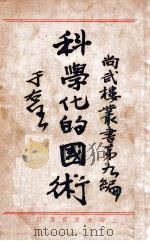 尚武樓叢書第九編
科學化的國術
于右任